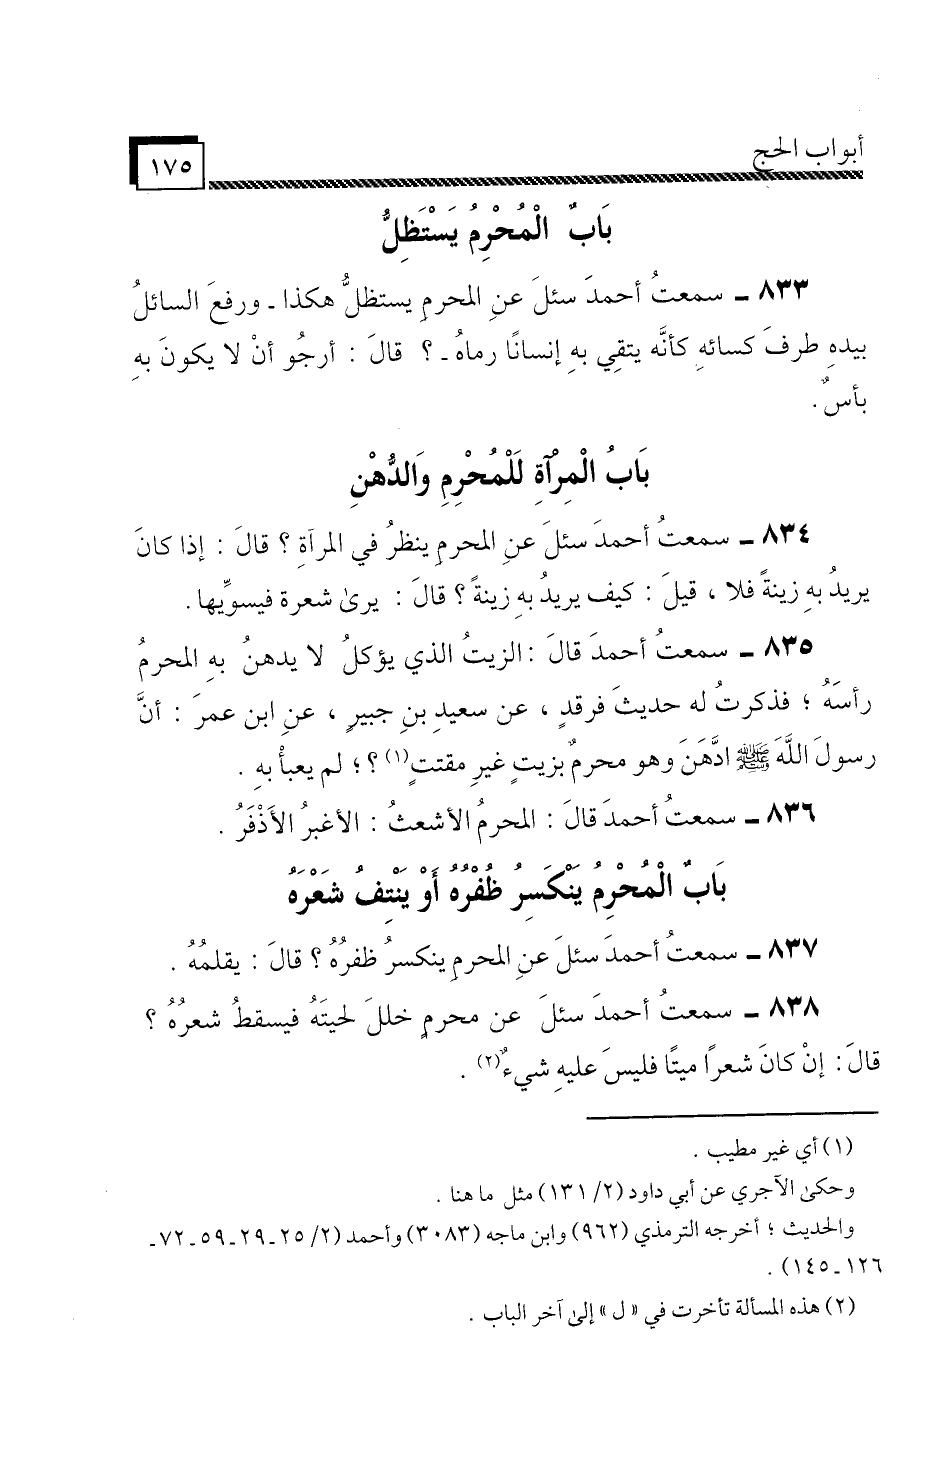 أبواب الحج
١٧٥
بَابٌ الْمُحْرِمُ يَسْتَظِلُّ
٨٣٣ ـ سمعتُ أحمدَ سئلَ عنِ المحرمِ يستظلُّ هكذا ـ ورفعَ السائلُ
بيدهِ طرفَ كسائهِ كأنَّه يتقِي بهِ إنسانًا رماهُ ـ ؟ قالَ : أرجُو أنْ لا يكونَ بهِ
بأسٌ .
بَابُ الْمِرْآةِ لَلْمُحْرِمِ وَالدُّهْنِ
٨٣٤ ـ سمعتُ أحمدَ سئلَ عنِ المحرمِ ينظرُ في المرآةِ ؟ قالَ : إذا كانَ
يريدُ بهِ زينةً فلا ، قيلَ : كيف يريدُ بهِ زينةً ؟ قالَ : يرىٰ شعرة فيسوِّيها .
٨٣٥ ـ سمعتُ أحمدَ قالَ : الزيتُ الذي يؤكلُ لا يدهنُ بهِ المحرمُ
رأسَهُ ؛ فذكرتُ له حديثَ فرقدٍ ، عن سعيدِ بنِ جبيرٍ ، عنِ ابن عمرَ : أنَّ
رسولَ اللَّهَ ﷺ ادَّهَنَ وهو محرمٌ بزيتٍ غيرِ مقتتٍ(١) ؟ ؛ لم يعبأْ بهِ .
٨٣٦ ـ سمعتُ أحمدَ قالَ : المحرمُ الأشعثُ : الأغبرُ الأَذْفَرُ .
بَابٌ الْمُحْرِمُ يَنْكَسِرُ ظُفْرُهُ أَوْ يَنْتِفُ شَعْرَهُ
٨٣٧ ـ سمعتُ أحمدَ سئلَ عنِ المحرمِ ينكسرُ ظفرُهُ ؟ قالَ : يقلمُهُ .
٨٣٨ ـ سمعتُ أحمدَ سئلَ عن محرمٍ خللَ لحيتَهُ فيسقطُ شعرُهُ ؟
قالَ : إنْ كانَ شعرًا ميتًا فليسَ عليهِ شيءٌ(٢) .
(١) أي غير مطيب .
وحكىٰ الآجري عن أبي داود (٢/ ١٣١) مثل ما هنا .
والحديث ؛ أخرجه الترمذي (٩٦٢) وابن ماجه (٣٠٨٣) وأحمد (٢/ ٢٥ـ٢٩ـ٥٩ـ٧٢ـ
١٢٦ـ١٤٥) .
(٢) هذه المسألة تأخرت في «ل» إلىٰ آخر الباب .